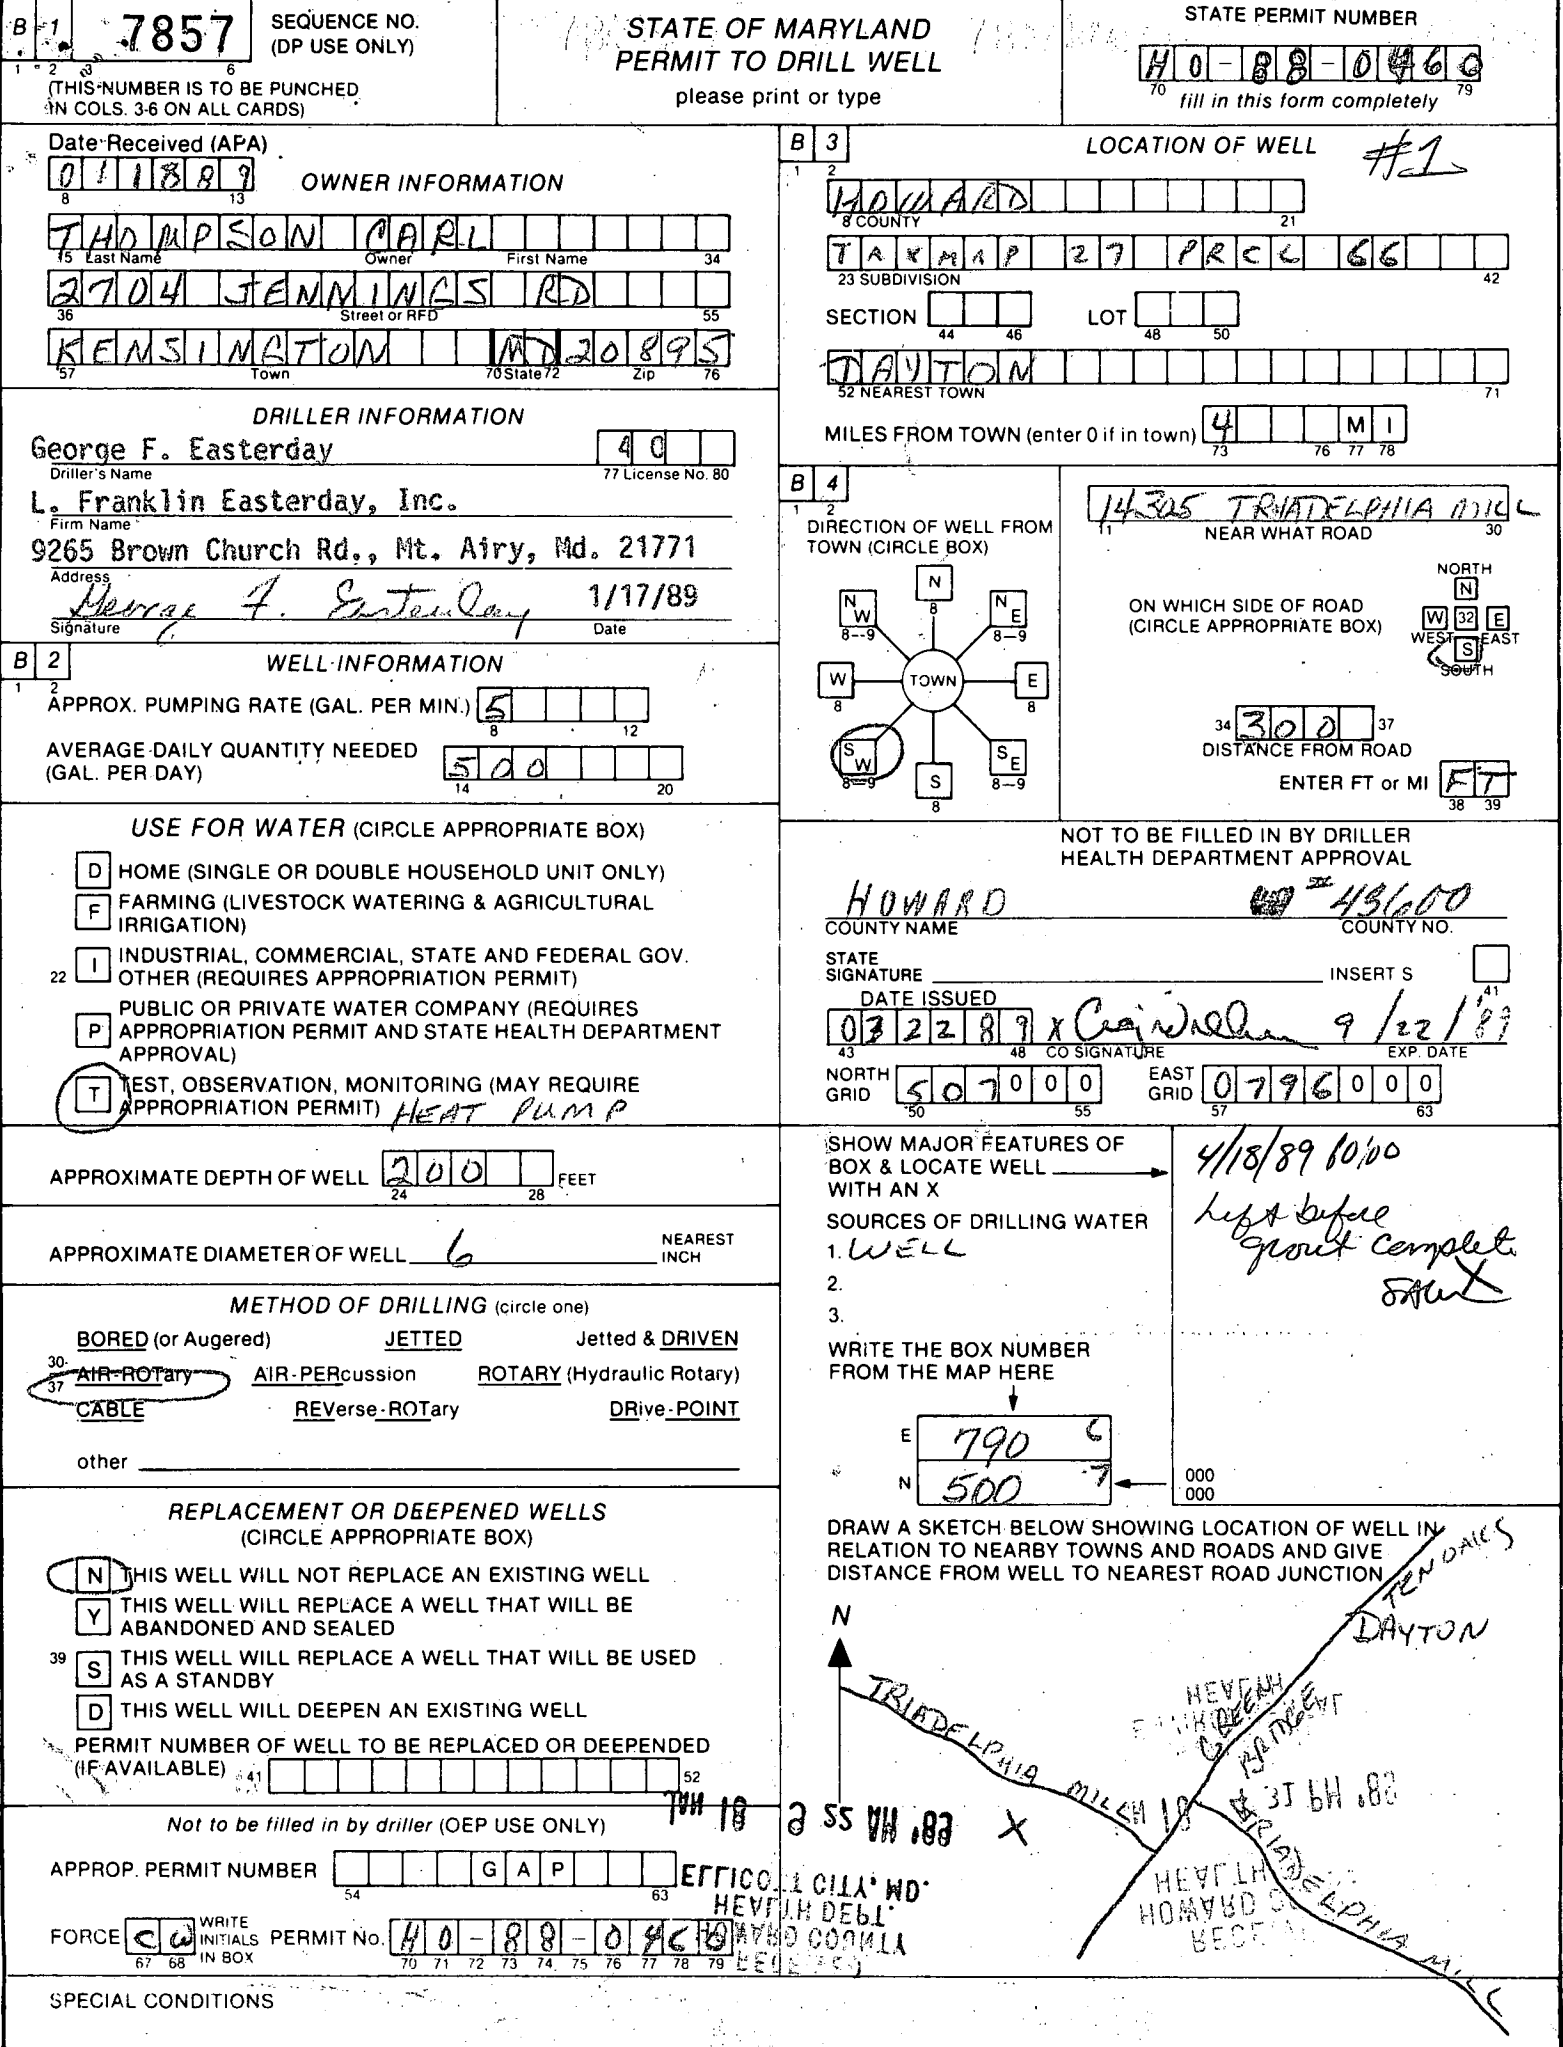 B 1 7857 SEQUENCE NO.
(DP USE ONLY)
1 2 3 6
(THIS NUMBER IS TO BE PUNCHED
IN COLS. 3-6 ON ALL CARDS)
STATE OF MARYLAND
PERMIT TO DRILL WELL
please print or type
STATE PERMIT NUMBER
HO-88-0460
70 79
fill in this form completely
Date Received (APA)
011889
8 13
OWNER INFORMATION
THOMPSON CARL
15 Last Name Owner First Name 34
2704 JENNINGS RD
36 Street or RFD 55
KENSINGTON MD 20895
57 Town 70 State 72 Zip 76
DRILLER INFORMATION
George F. Easterday 40
Driller's Name 77 License No. 80
L. Franklin Easterday, Inc.
Firm Name
9265 Brown Church Rd., Mt. Airy, Md. 21771
Address
George F. Easterday 1/17/89
Signature Date
B 2 WELL INFORMATION
1 2
APPROX. PUMPING RATE (GAL. PER MIN.) 5
8 12
AVERAGE DAILY QUANTITY NEEDED
(GAL. PER DAY) 500
14 20
USE FOR WATER (CIRCLE APPROPRIATE BOX)
D HOME (SINGLE OR DOUBLE HOUSEHOLD UNIT ONLY)
F FARMING (LIVESTOCK WATERING & AGRICULTURAL
IRRIGATION)
22 I INDUSTRIAL, COMMERCIAL, STATE AND FEDERAL GOV.
OTHER (REQUIRES APPROPRIATION PERMIT)
P PUBLIC OR PRIVATE WATER COMPANY (REQUIRES
APPROPRIATION PERMIT AND STATE HEALTH DEPARTMENT
APPROVAL)
T TEST, OBSERVATION, MONITORING (MAY REQUIRE
APPROPRIATION PERMIT) HEAT PUMP
APPROXIMATE DEPTH OF WELL 200 FEET
24 28
APPROXIMATE DIAMETER OF WELL 6 NEAREST
INCH
METHOD OF DRILLING (circle one)
BORED (or Augered) JETTED Jetted & DRIVEN
30-37 AIR-ROTary AIR-PERcussion ROTARY (Hydraulic Rotary)
CABLE REVerse-ROTary DRive-POINT
other
REPLACEMENT OR DEEPENED WELLS
(CIRCLE APPROPRIATE BOX)
N THIS WELL WILL NOT REPLACE AN EXISTING WELL
Y THIS WELL WILL REPLACE A WELL THAT WILL BE
ABANDONED AND SEALED
39 S THIS WELL WILL REPLACE A WELL THAT WILL BE USED
AS A STANDBY
D THIS WELL WILL DEEPEN AN EXISTING WELL
PERMIT NUMBER OF WELL TO BE REPLACED OR DEEPENED
(IF AVAILABLE) 41 52
Not to be filled in by driller (OEP USE ONLY)
APPROP. PERMIT NUMBER GAP
54 63
FORCE CW WRITE
INITIALS
IN BOX
67 68
PERMIT No. HO-88-0460
70 71 72 73 74 75 76 77 78 79
SPECIAL CONDITIONS
B 3 LOCATION OF WELL #1
1 2
HOWARD
8 COUNTY 21
TAXMAP 27 PRCL 66
23 SUBDIVISION 42
SECTION LOT
44 46 48 50
DAYTON
52 NEAREST TOWN 71
MILES FROM TOWN (enter 0 if in town) 4 MI
73 76 77 78
B 4
1 2
DIRECTION OF WELL FROM
TOWN (CIRCLE BOX)
N
8
NW NE
8-9 8-9
W TOWN E
8 8
SW SE
8-9 8-9
S
8
14305 TRIADELPHIA MILL
11 NEAR WHAT ROAD 30
ON WHICH SIDE OF ROAD
(CIRCLE APPROPRIATE BOX)
NORTH
N
W 32 E
WEST EAST
S
SOUTH
34 300 37
DISTANCE FROM ROAD
ENTER FT or MI FT
38 39
NOT TO BE FILLED IN BY DRILLER
HEALTH DEPARTMENT APPROVAL
HOWARD 43600
COUNTY NAME COUNTY NO.
STATE
SIGNATURE INSERT S
41
DATE ISSUED
032289 X 9/22/89
43 48 CO SIGNATURE EXP. DATE
NORTH
GRID 507000
50 55
EAST
GRID 0796000
57 63
SHOW MAJOR FEATURES OF
BOX & LOCATE WELL
WITH AN X
4/18/89 10:00
Left before
grout complete
X
SOURCES OF DRILLING WATER
1. WELL
2.
3.
WRITE THE BOX NUMBER
FROM THE MAP HERE
E 790 6
N 500 7
000
000
DRAW A SKETCH BELOW SHOWING LOCATION OF WELL IN
RELATION TO NEARBY TOWNS AND ROADS AND GIVE
DISTANCE FROM WELL TO NEAREST ROAD JUNCTION
N
TEN OAKS
DAYTON
TRIADELPHIA MILL
GREEN BRIDGE
TRIADELPHIA MILL
X
RECEIVED
HOWARD COUNTY
HEALTH DEPT.
ELLICOTT CITY, MD.
JAN 18